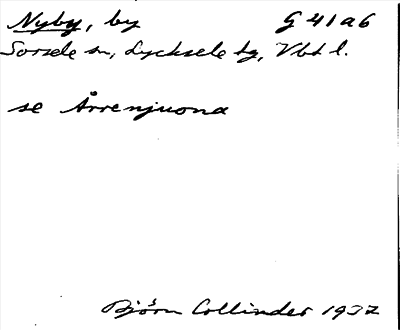 Nyby, by G 41 a 6
Sorsele sn, Lycksele tg, Vbt l.
se Årrenjuona
Björn Collinder 1932